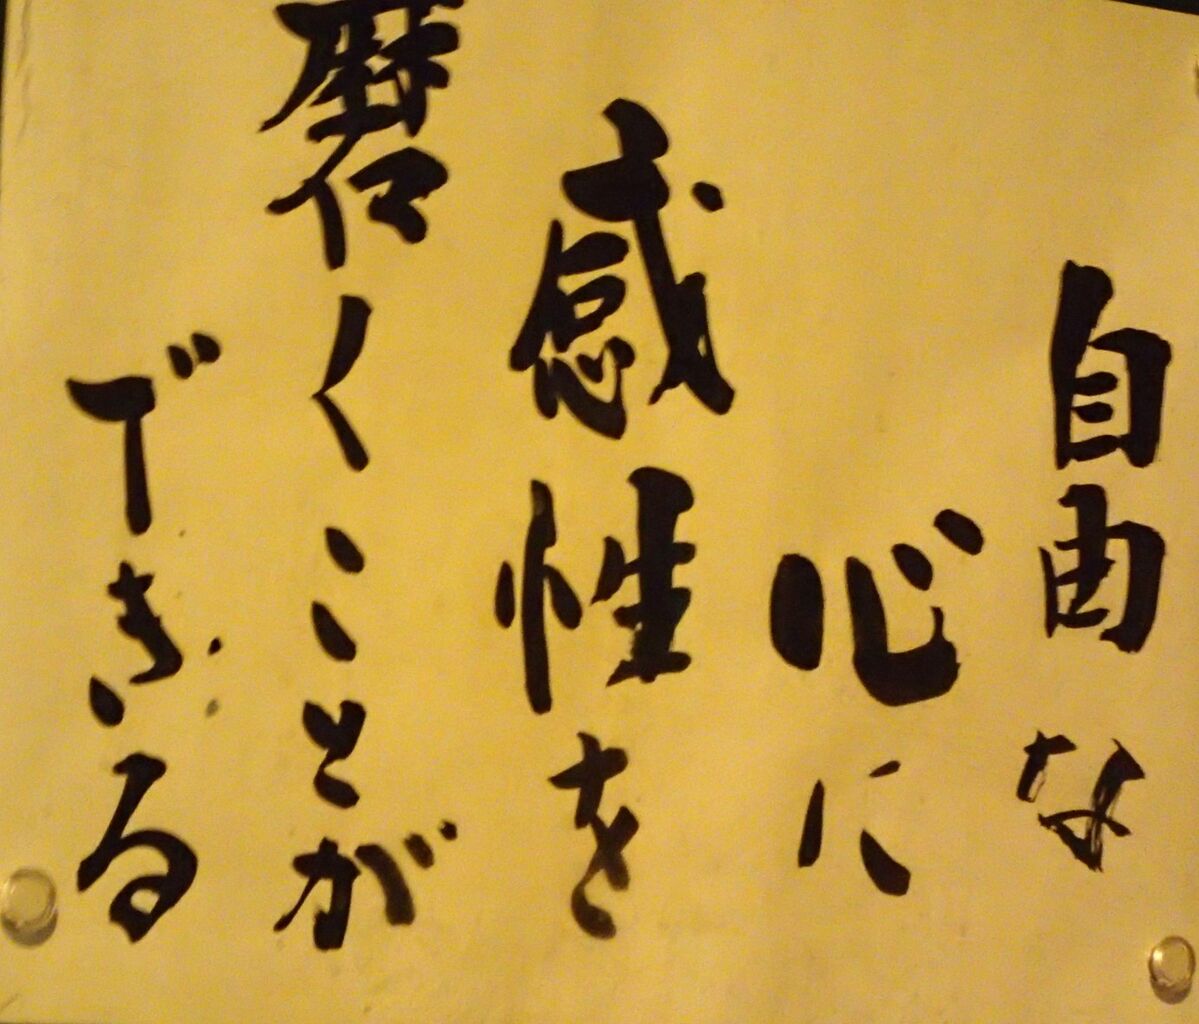 自由な
心に
感性を
磨くことが
できる